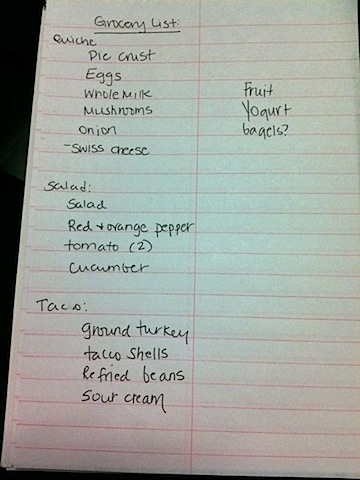 Grocery List:
Quiche
Pie crust
Eggs
Whole Milk
Mushrooms
onion
-Swiss cheese
Fruit
Yogurt
bagels?
Salad:
Salad
Red + orange pepper
tomato (2)
cucumber
Taco:
ground turkey
taco shells
Refried beans
Sour cream